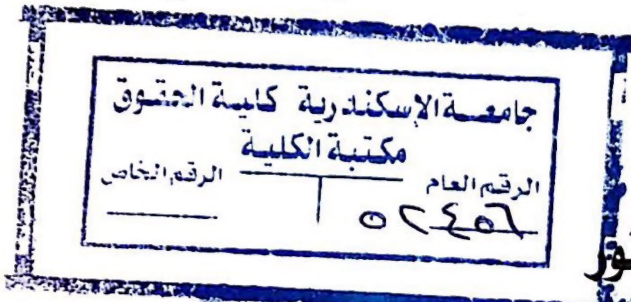 جامعة الإسكندرية كلية الحقوق
مكتبة الكلية
الرقم العام الرقم الخاص
٥٢٤٥٦